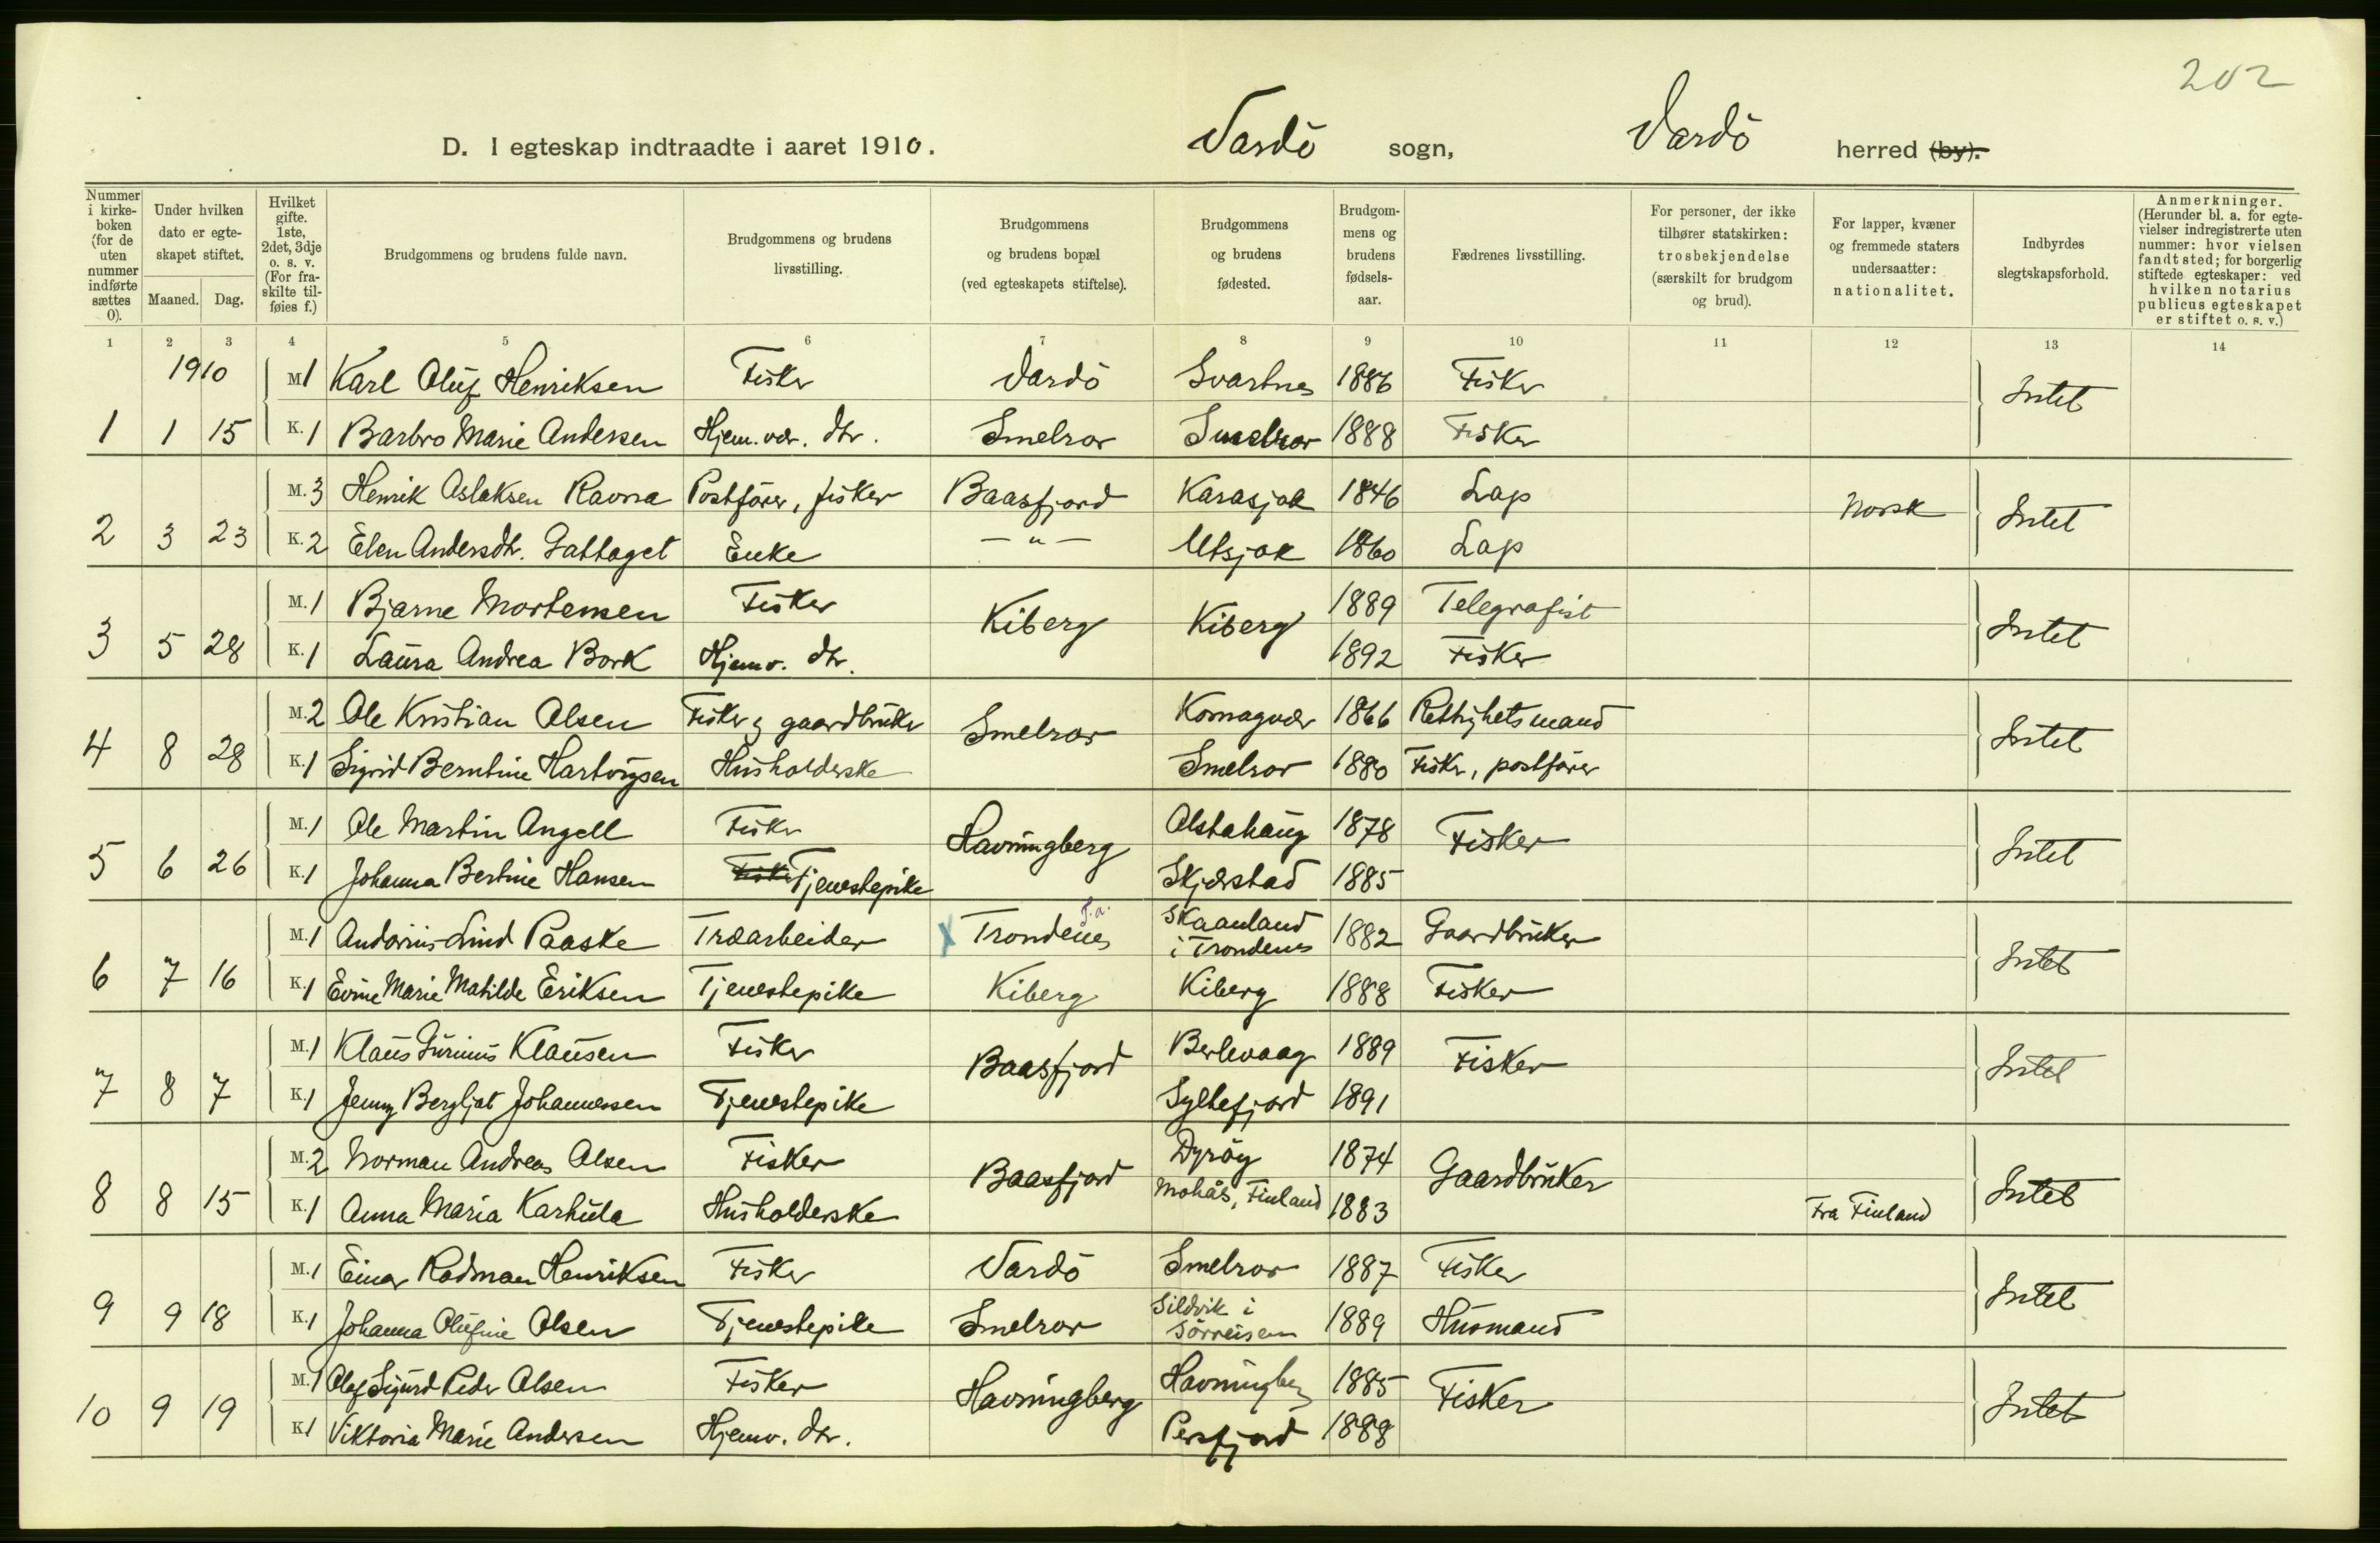 202
D. I egteskap indtraadte i aaret 1910. Vardö sogn, Vardö herred (by).
Nummer i kirkeboken (for de uten nummer indførte sættes 0).
Under hvilken dato er egteskapet stiftet.
Maaned. Dag.
Hvilket gifte. 1ste, 2det, 3dje o. s. v. (For fraskilte tilføies f.)
Brudgommens og brudens fulde navn.
Brudgommens og brudens livsstilling.
Brudgommens og brudens bopæl (ved egteskapets stiftelse).
Brudgommens og brudens fødested.
Brudgommens og brudens fødselsaar.
Fædrenes livsstilling.
For personer, der ikke tilhører statskirken: trosbekjendelse (særskilt for brudgom og brud).
For lapper, kvæner og fremmede staters undersaatter: nationalitet.
Indbyrdes slegtskapsforhold.
Anmerkninger. (Herunder bl. a. for egtevielser indregistrerte uten nummer: hvor vielsen fandt sted; for borgerlig stiftede egteskaper: ved hvilken notarius publicus egteskapet er stiftet o. s. v.)
1 2 3 4 5 6 7 8 9 10 11 12 13 14
1910 M 1 Karl Oluf Henriksen Fisker Vardö Svartnes 1886 Fisker Intet
1 1 15 K. 1 Barbro Marie Andersen Hjem.vær. dtr. Smelror Smelror 1888 Fisker
M. 3 Henrik Aslaksen Ravna Postförer, fisker Baasfjord Karasjok 1846 Lap Norsk Intet
2 3 23 K. 2 Elen Andersdtr. Enke — " — Utsjok 1860 Lap
M. 1 Bjarne Mortensen Fisker Kiberg Kiberg 1889 Telegrafist Intet
3 5 28 K. 1 Laura Andrea Bork Hjemv. dtr. 1892 Fisker
M. 2 Ole Kristian Olsen Fisker g gaardbruker Smelror Komagvær 1866 Rettighetsmand Intet
4 8 28 K. 1 Sigrid Berntine Hartvigsen Husholderske Smelror 1880 Fisker, postförer
M. 1 Ole Martin Angell Fisker Havningberg Alstahaug 1878 Fisker Intet
5 6 26 K. 1 Johanna Bertine Hansen Fisker Tjenestepike Skjerstad 1885
M. 1 Lind Paaske Træarbeider X Trondenes T.a. Skaanland i Trondenes 1882 Gaardbruker Intet
6 7 16 K. 1 Evine Marie Matilde Eriksen Tjenestepike Kiberg Kiberg 1888 Fisker
M. 1 Klaus Klausen Fisker Baasfjord Berlevaag 1889 Fisker Intet
7 8 7 K. 1 Jenny Bergljot Johannessen Tjenestepike Syltefjord 1891
M. 2 Norman Andreas Olsen Fisker Baasfjord Dyröy 1874 Gaardbruker Intet
8 8 15 K. 1 Anna Maria Karhula Husholderske Mohås, Finland 1883 Fra Finland
M. 1 Einar Radman Henriksen Fisker Vardö Smelror 1887 Fisker Intet
9 9 18 K. 1 Johanna Olufine Olsen Tjenestepike Smelror Sildvik i Sörreisen 1889 Husmand
M. 1 Olaf Sigurd Peder Olsen Fisker Havningberg Havningberg 1885 Fisker Intet
10 9 19 K 1 Viktoria Marie Andersen Hjemv. dtr. Persfjord 1888